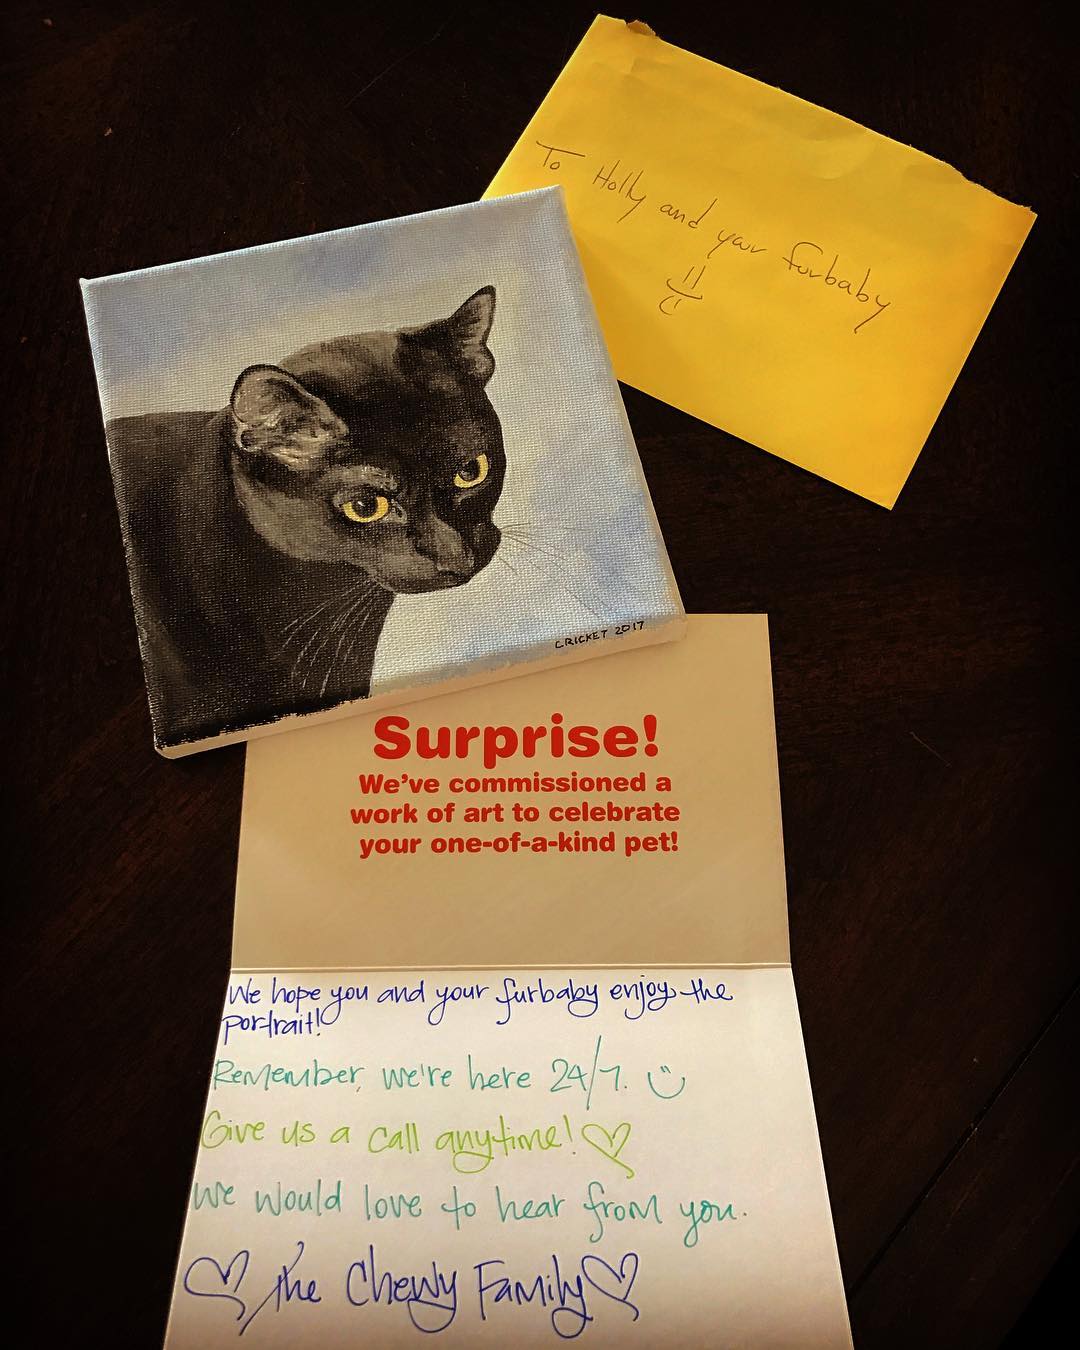 To Holly and your furbaby
=)
CRICKET 2017
Surprise!
We've commissioned a
work of art to celebrate
your one-of-a-kind pet!
We hope you and your furbaby enjoy the
portrait!
Remember, we're here 24/7. :)
Give us a call anytime! ♡
We would love to hear from you.
♡ The Chewy Family ♡